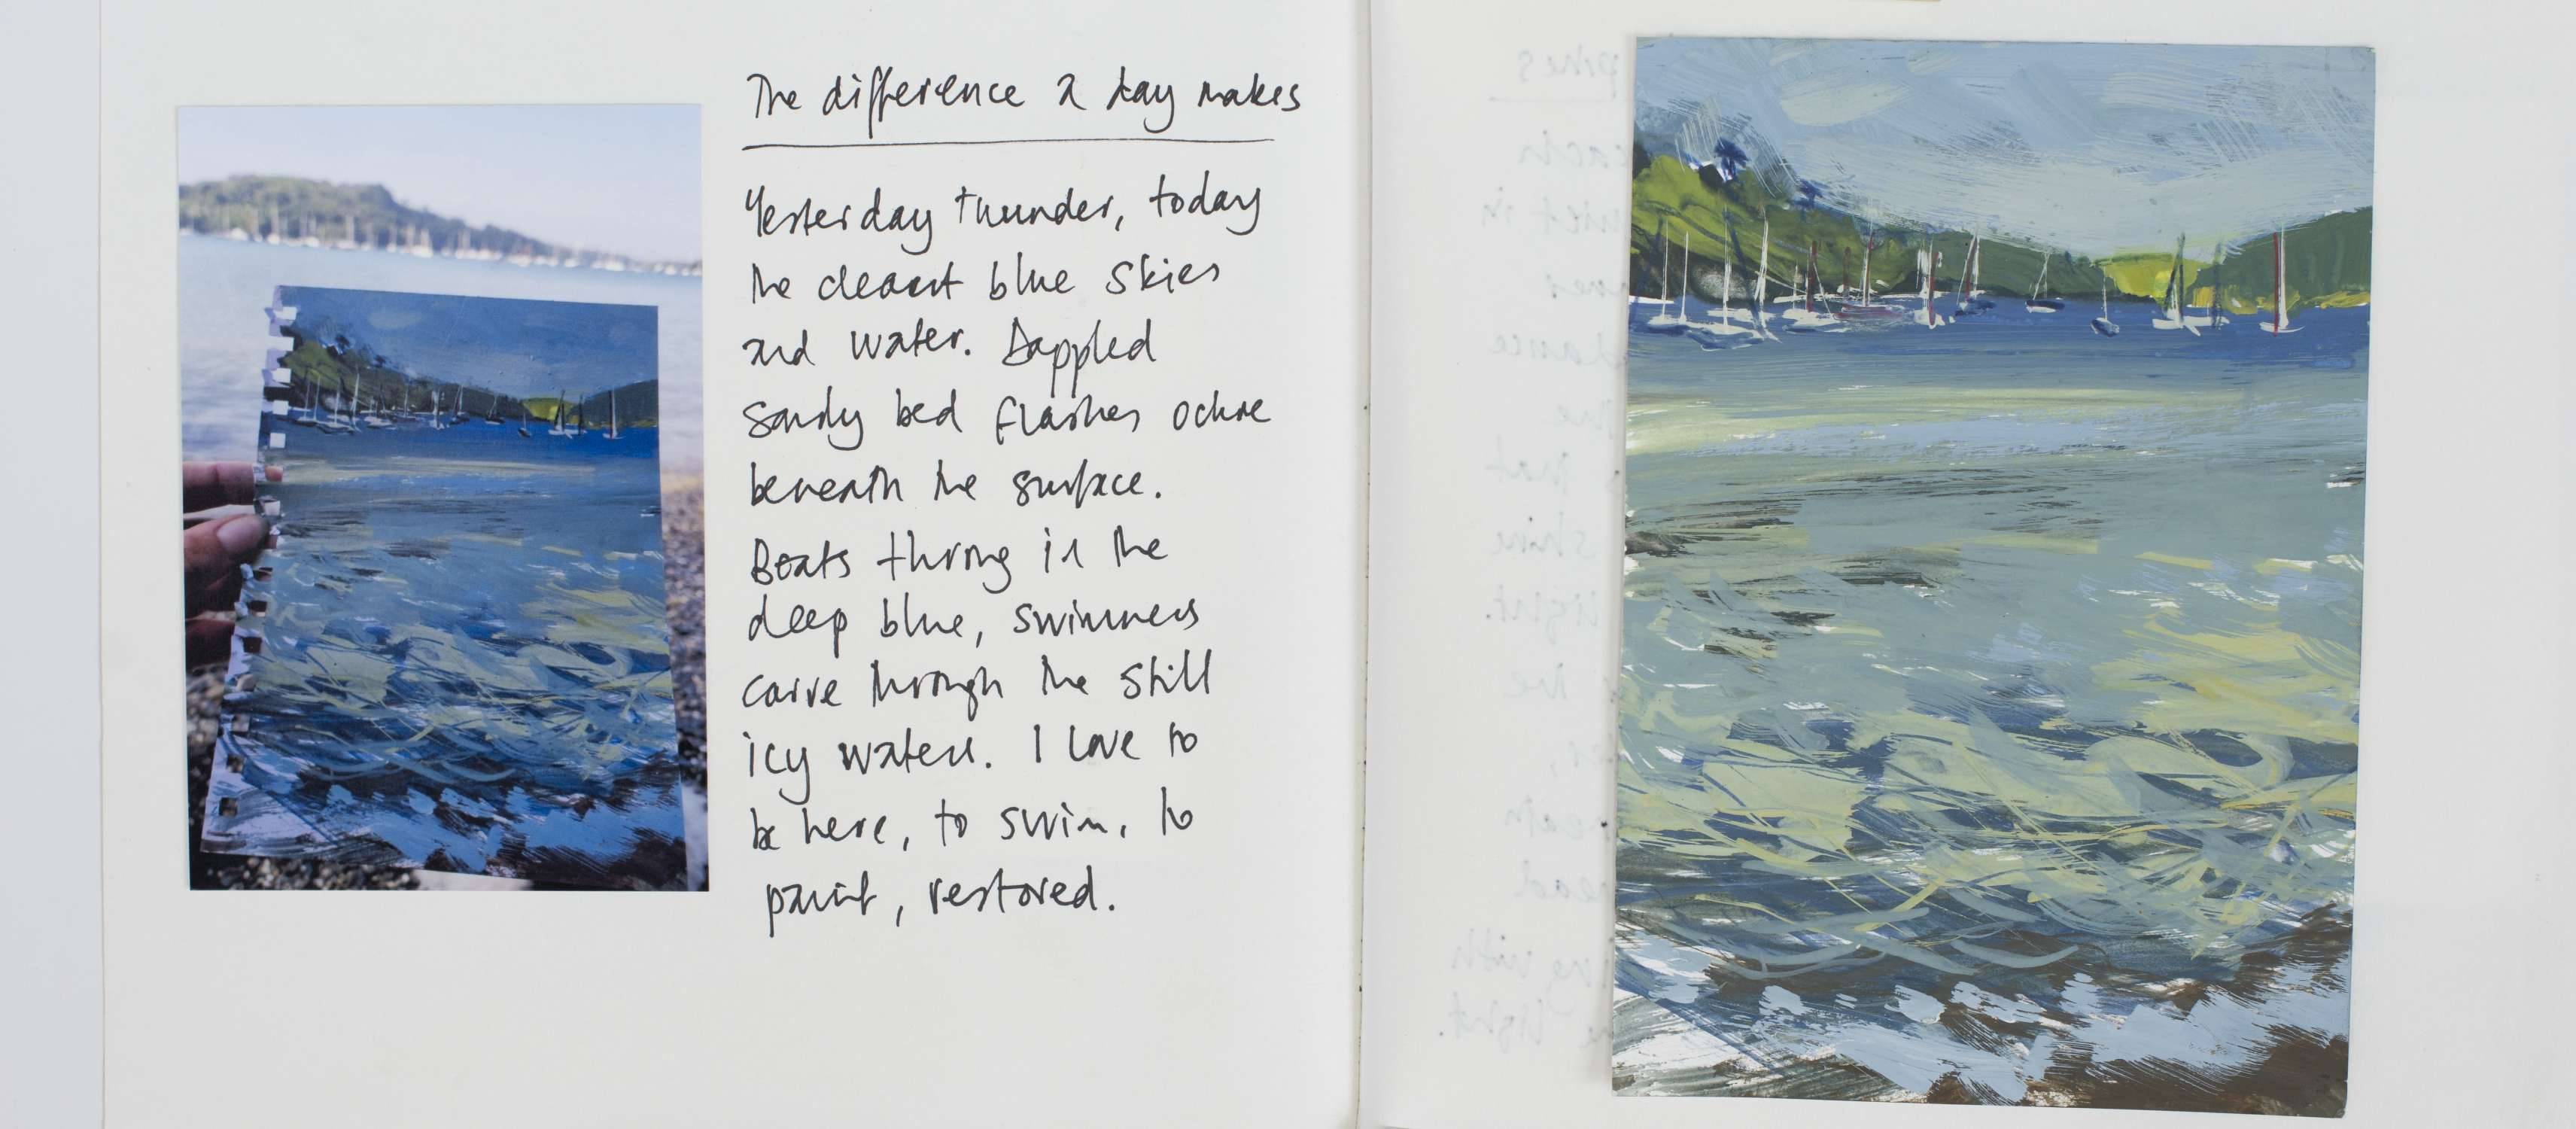 The difference a day makes
Yesterday thunder, today
the clearest blue skies
and water. Dappled
sandy bed flashes ochre
beneath the surface.
Boats throng in the
deep blue, swimmers
carve through the still
icy waters. I love to
be here, to swim, to
paint, restored.